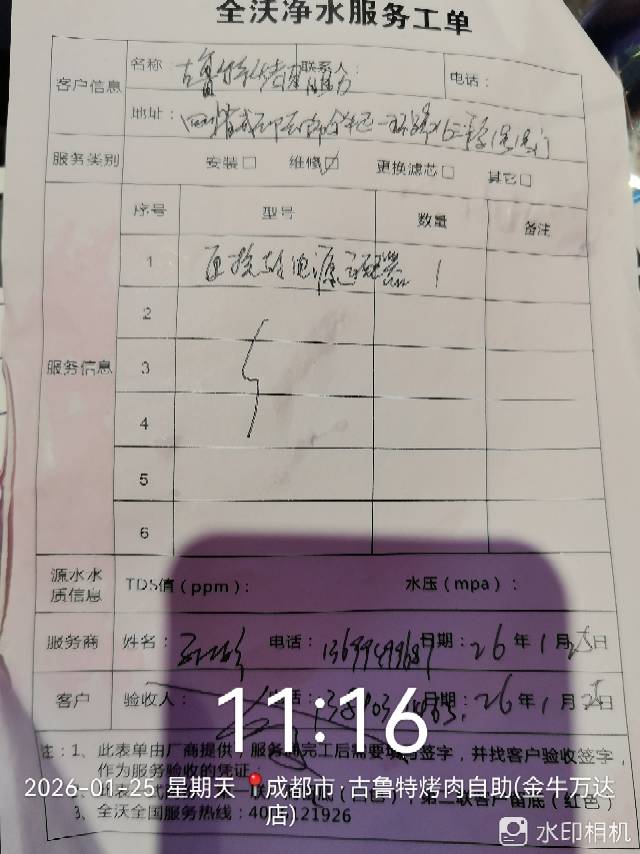 全沃净水服务工单
客户信息
名称：古鲁特烤肉 联系人： 电话：
地址：四川省成都市金牛区一环路北三段
服务类别 安装□ 维修☑ 更换滤芯□ 其它□
服务信息
序号 型号 数量 备注
1 更换 电源适配器 1
2
3
4
5
6
源水水质信息 TDS值（ppm）： 水压（mpa）：
服务商 姓名： 电话： 日期：26年1月25日
客户 验收人： 日期：26年1月25日
11:16
注：1、此表单由厂商提供，服务 完工后需要 签字，并找客户验收签字，
作为服务验收的凭证；
2026-01-25 星期天 成都市·古鲁特烤肉自助(金牛万达店)
第二联客户留底（红色）
3、全沃全国服务热线：40 121926
水印相机